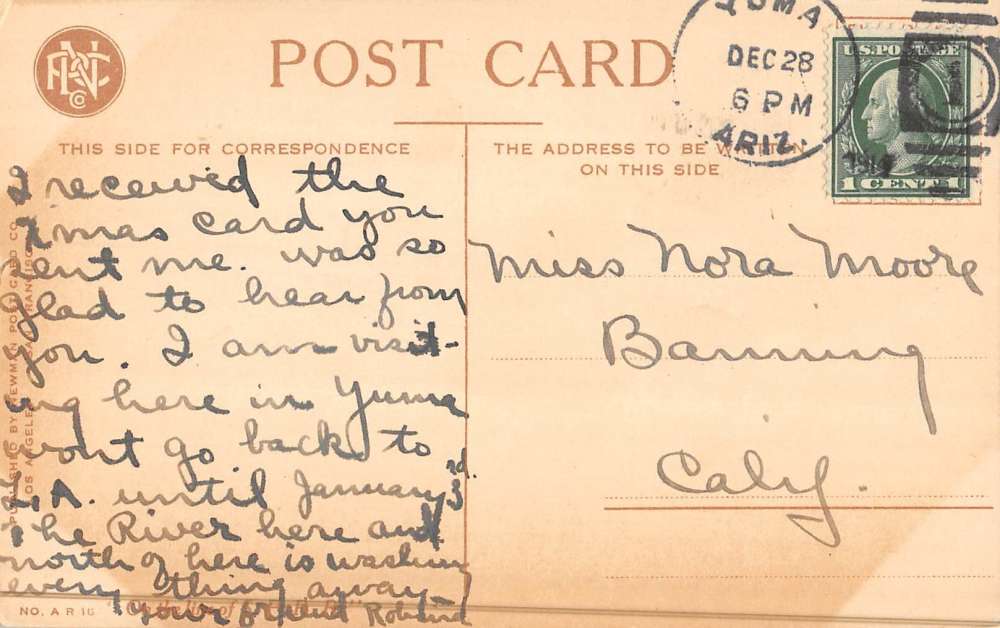 POST CARD
YUMA
DEC 28
6 PM
ARIZ.
U.S. POSTAGE
1 CENT 1
THIS SIDE FOR CORRESPONDENCE
THE ADDRESS TO BE WRITTEN
ON THIS SIDE
I received the
Xmas card you
sent me. was so
glad to hear from
you. I am visit-
ing here in Yuma
wont go back to
L.A. until January 3rd.
The River here and
north of here is washing
every thing away
Your friend
Miss Nora Moore
Banning
Calif.
PUBLISHED BY NEWMAN POST CARD CO.
LOS ANGELES SAN FRANCISCO
NO. A R 16